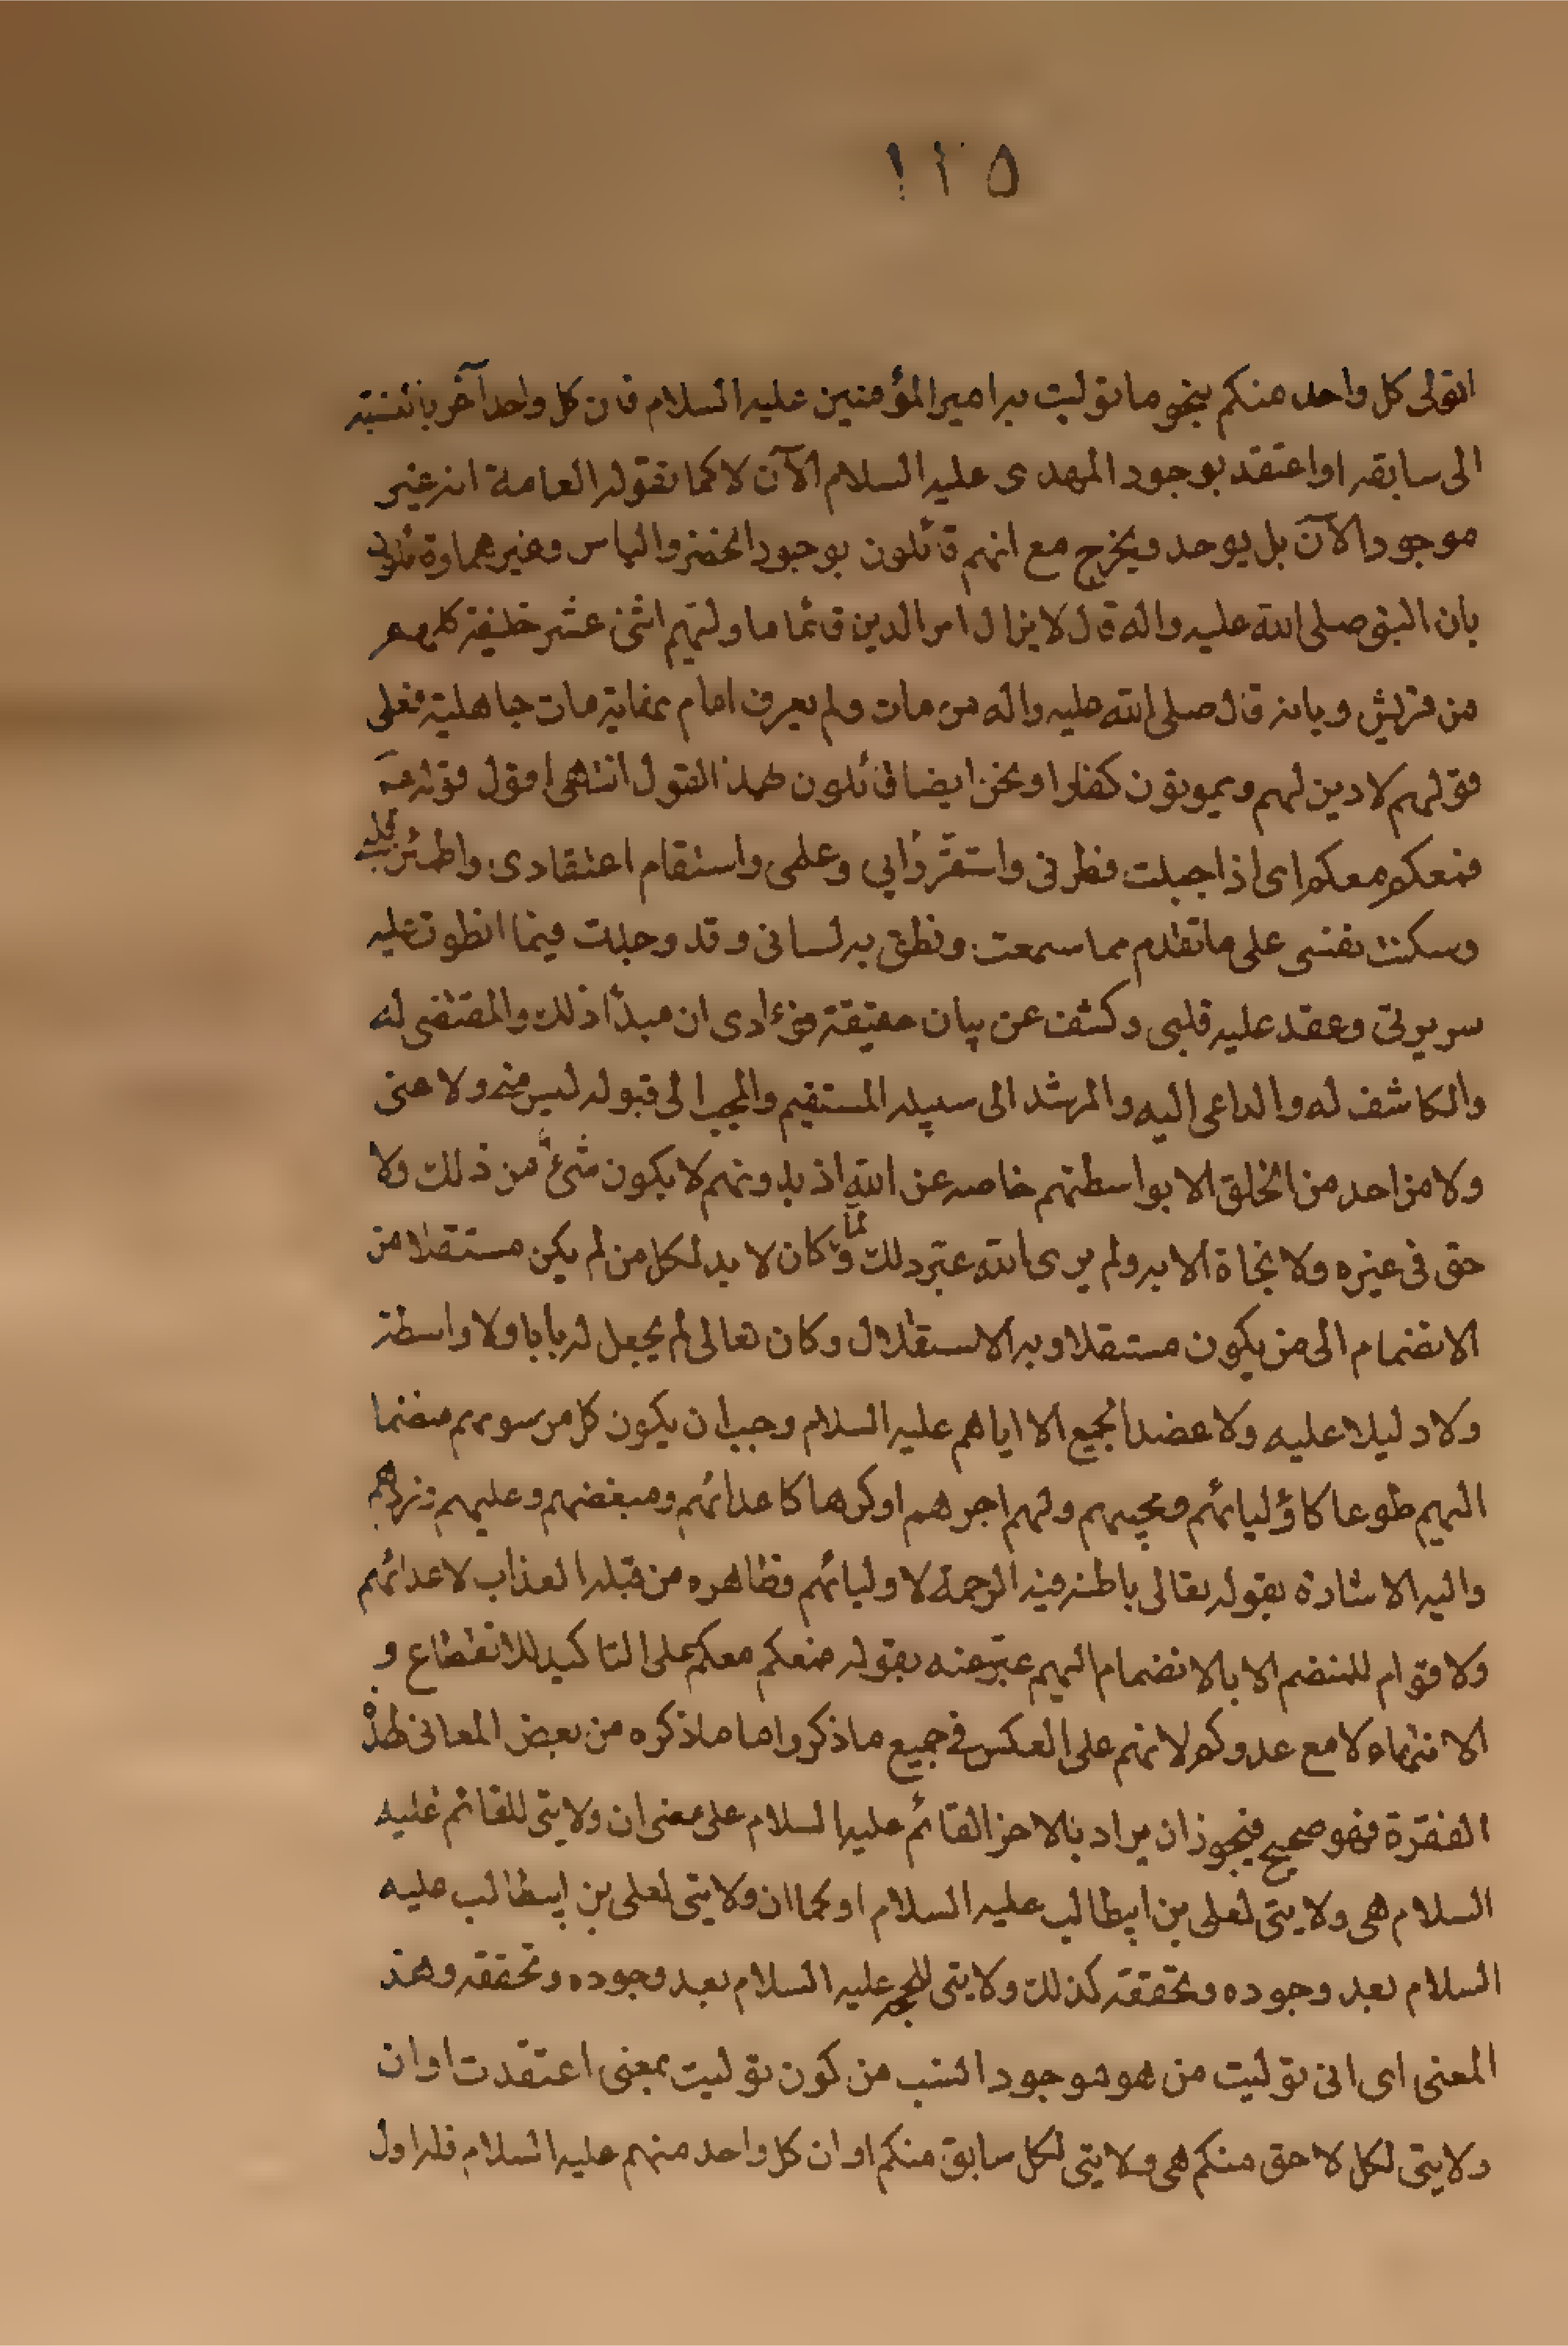 ١٢٥
اتولى كل واحد منكم بنحو ما توليت به امير المؤمنين عليه السلام فان كل واحد آخر بالنسبة
الى سابقه او اعتقد بوجود المهدى عليه السلام الآن لا كما تقوله العامة انه غير
موجود الآن بل يوجد ويخرج مع انهم قائلون بوجود الخضر والياس وغيرهما وقائلون
بان النبى صلى الله عليه واله قال لا يزال امر الدين قائما ما وليهم اثنى عشر خليفة كلهم
من قريش وبانه قال صلى الله عليه واله من مات ولم يعرف امام زمانه مات جاهلية فعلى
قولهم لا دين لهم ويموتون كفارا ونحن ايضا قائلون بهذا القول انتهى اقول قوله عـ
فمعكم معكم اى اذا جبلت فطرتى واستقر رأيي وعلمى واستقام اعتقادى واطمئن قلبى
وسكنت نفسى على ما تقدم مما سمعت ونطق به لسانى وقد وجدت فيما انطوت عليه
سريرتى وعقد عليه قلبى وكشف عن بيان حقيقة فؤادى ان مبدأ ذلك والمقتضى له
والكاشف له والداعى اليه والمرشد الى سبيله المستقيم والمجيب الى قبوله ليس منه ولا منى
ولا من احد من الخلق الا بواسطتهم خاصه عن الله اذ بدونهم لا يكون شئ من ذلك ولا
حق فى غيره ولا نجاة الا به ولم يرى الله غير ذلك ولما كان لا بد لكل من لم يكن مستقلا من
الانضمام الى من يكون مستقلا و به الاستقلال وكان تعالى لم يجعل له بابا ولا واسطة
ولا دليلا عليه ولا عضدا لجميع الا اياهم عليه السلام وجب ان يكون كل من سويهم منضما
اليهم طوعا كاؤليائهم ومحبيهم ولهم اجرهم او كرها كاعدائهم ومبغضهم وعليهم وزرهم
واليه الاشارة بقوله تعالى باطنه فيه الرحمة لاوليائهم وظاهره من قبله العذاب لاعدائهم
ولا قوام للمنضم الا بالانضمام اليهم عبر عنه بقوله فمعكم معكم على التاكيد للانقطاع و
الانتماء لا مع عدوكم لانهم على العكس فى جميع ما ذكر واما ما ذكره من بعض المعانى لهذه
الفقرة فهو صحيح فيجوز ان يراد بالاخر القائم عليه السلام على معنى ان ولايتى للقائم عليه
السلام هى ولايتى لعلى بن ابيطالب عليه السلام او كما ان ولايتى لعلى بن ابيطالب عليه
السلام بعد وجوده وتحققه كذلك ولايتى للحجه عليه السلام بعد وجوده وتحققه وهذ
المعنى اى انى توليت من هو موجود انسب من كون توليت بمعنى اعتقدت او ان
ولايتى لكل لاحق منكم هى ولايتى لكل سابق منكم او ان كل واحد منهم عليه السلام فله اول